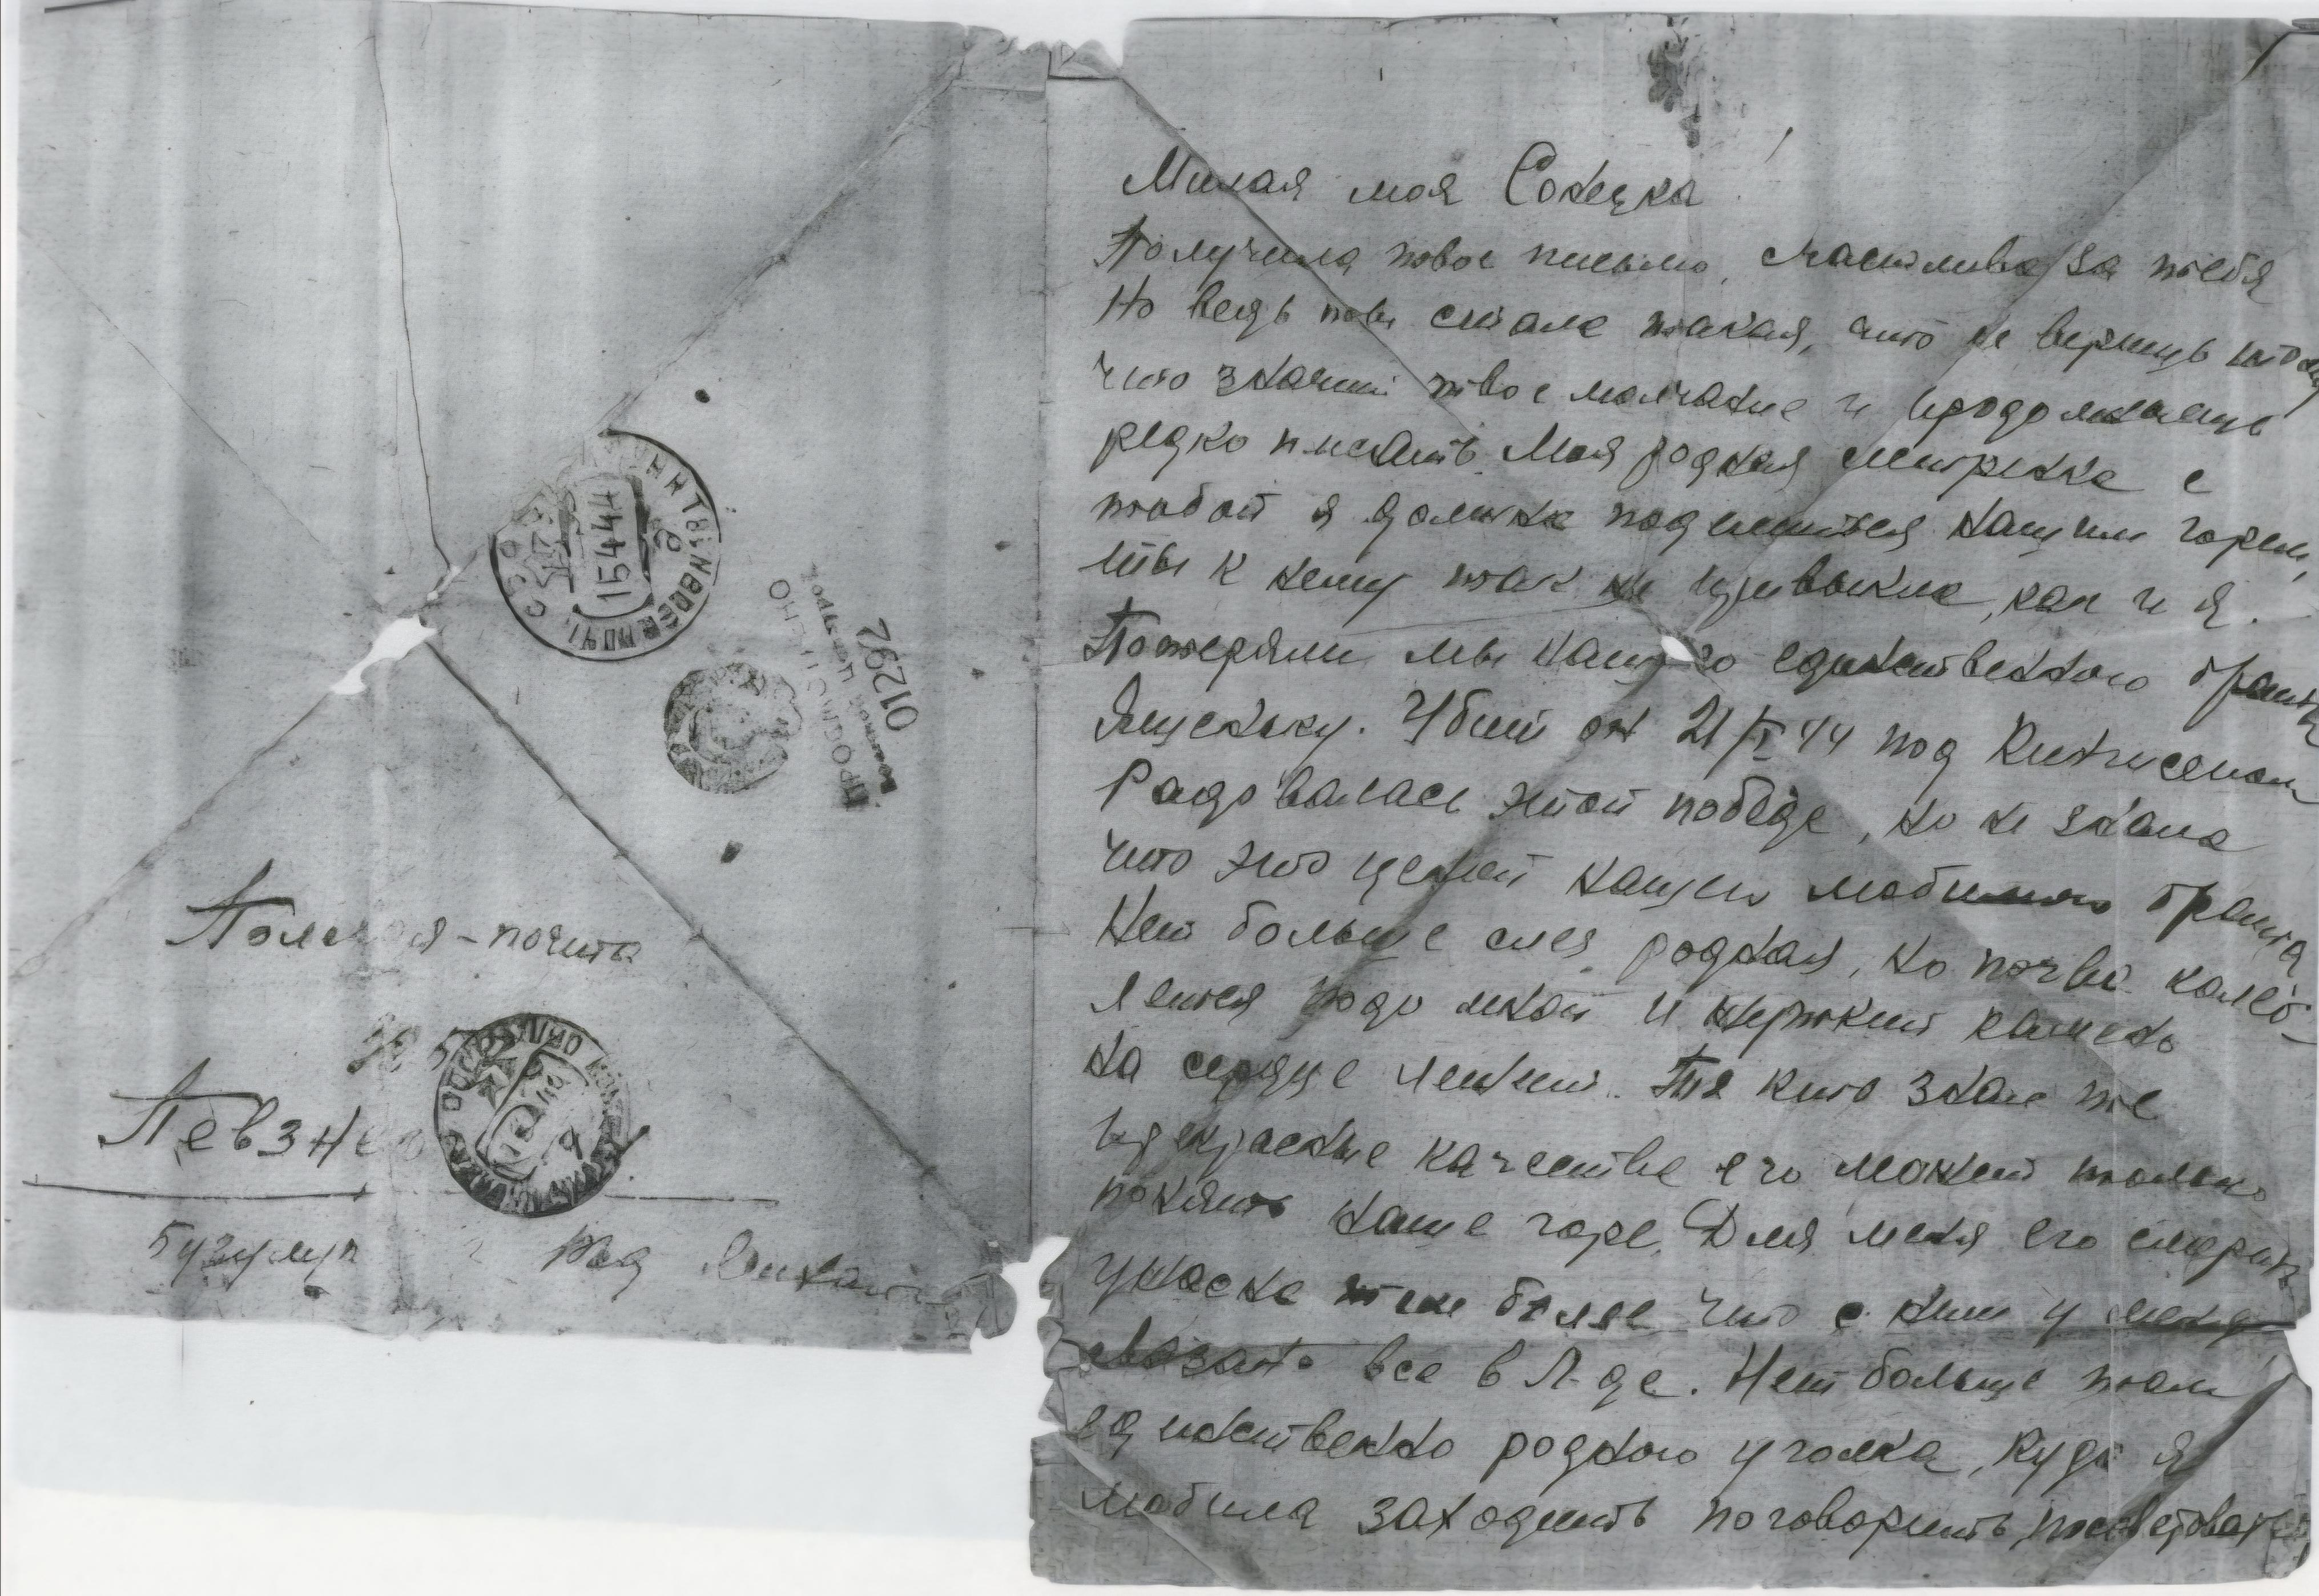 Полевая-почта
Певзнер
Бузулук
ЛЕНИНГРАД
15 4 44
ПРОСМОТРЕНО
Военной Цензурой
01292
Милая моя Сонечка!
Получила твое письмо, счастлива за тебя
Но ведь ты стала такая, что не веришь тому
что значит твое молчание и продолжаешь
редко писать. Моя родная сестренка с
тобой я должна поделиться нашим горем,
ты к нему так не привыкла, как и я.
Потеряли мы нашего единственного братика
Яшеньку. Убит он 21/I 44 под Кингисепом
Радовалась этой победе, но не знала
что это ценой нашего любимого брата
Нет больше слез родная, но почва колеб-
лется подо мной и камень
на сердце лежит. Те кто знал те
прекрасные качества его может только
понять наше горе. Для меня его смерть
ужасна тем более что с ним у меня
связано все в Л-де. Нет больше там
единственно родного уголка, куда я
любила заходить поговорить, посоветоваться